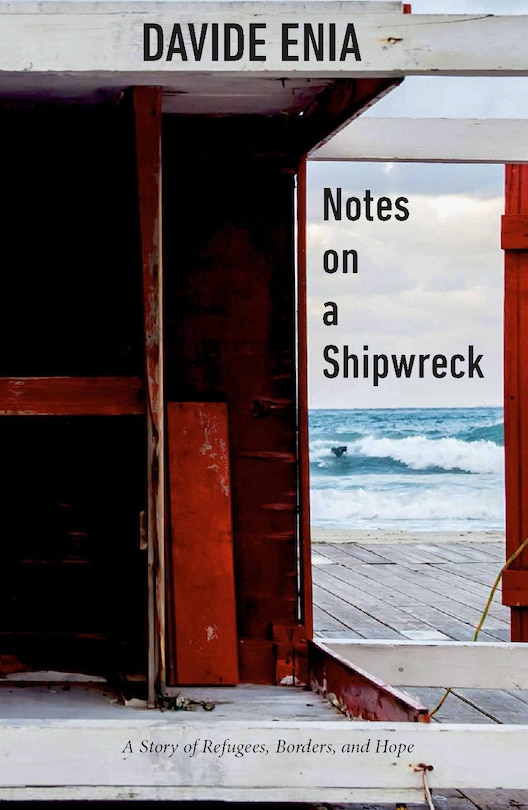 DAVIDE ENIA
Notes
on
a
Shipwreck
A Story of Refugees, Borders, and Hope